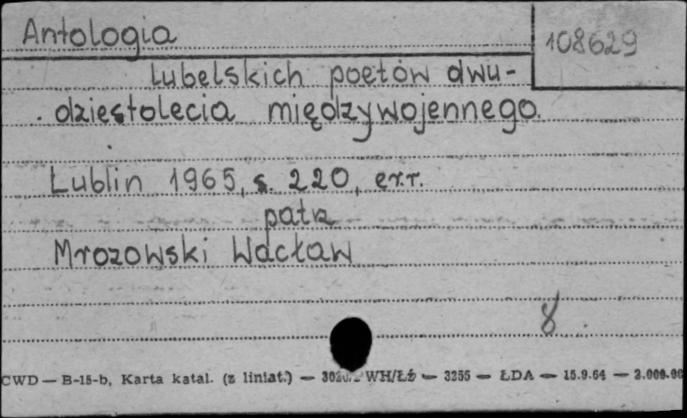 Antologia
108629
lubelskich poetów dwu-
dziestolecia międzywojennego.
Lublin 1965, s. 220, err.
patrz
Mrozowski Wacław
8
CWD — B-15-b, Karta katal. (z liniat.) — WH/Łź — 3255 — ŁDA — 15.9.64 — 2.000.00